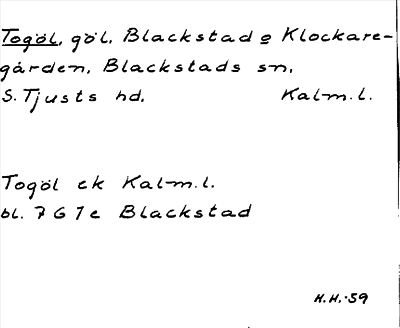 Togöl, göl, Blackstad o Klockare-
gården, Blackstads sn,
S. Tjusts hd. Kalm. l.
Togöl ek Kalm. l.
bl. 7 G 7 e Blackstad
H.H.-59